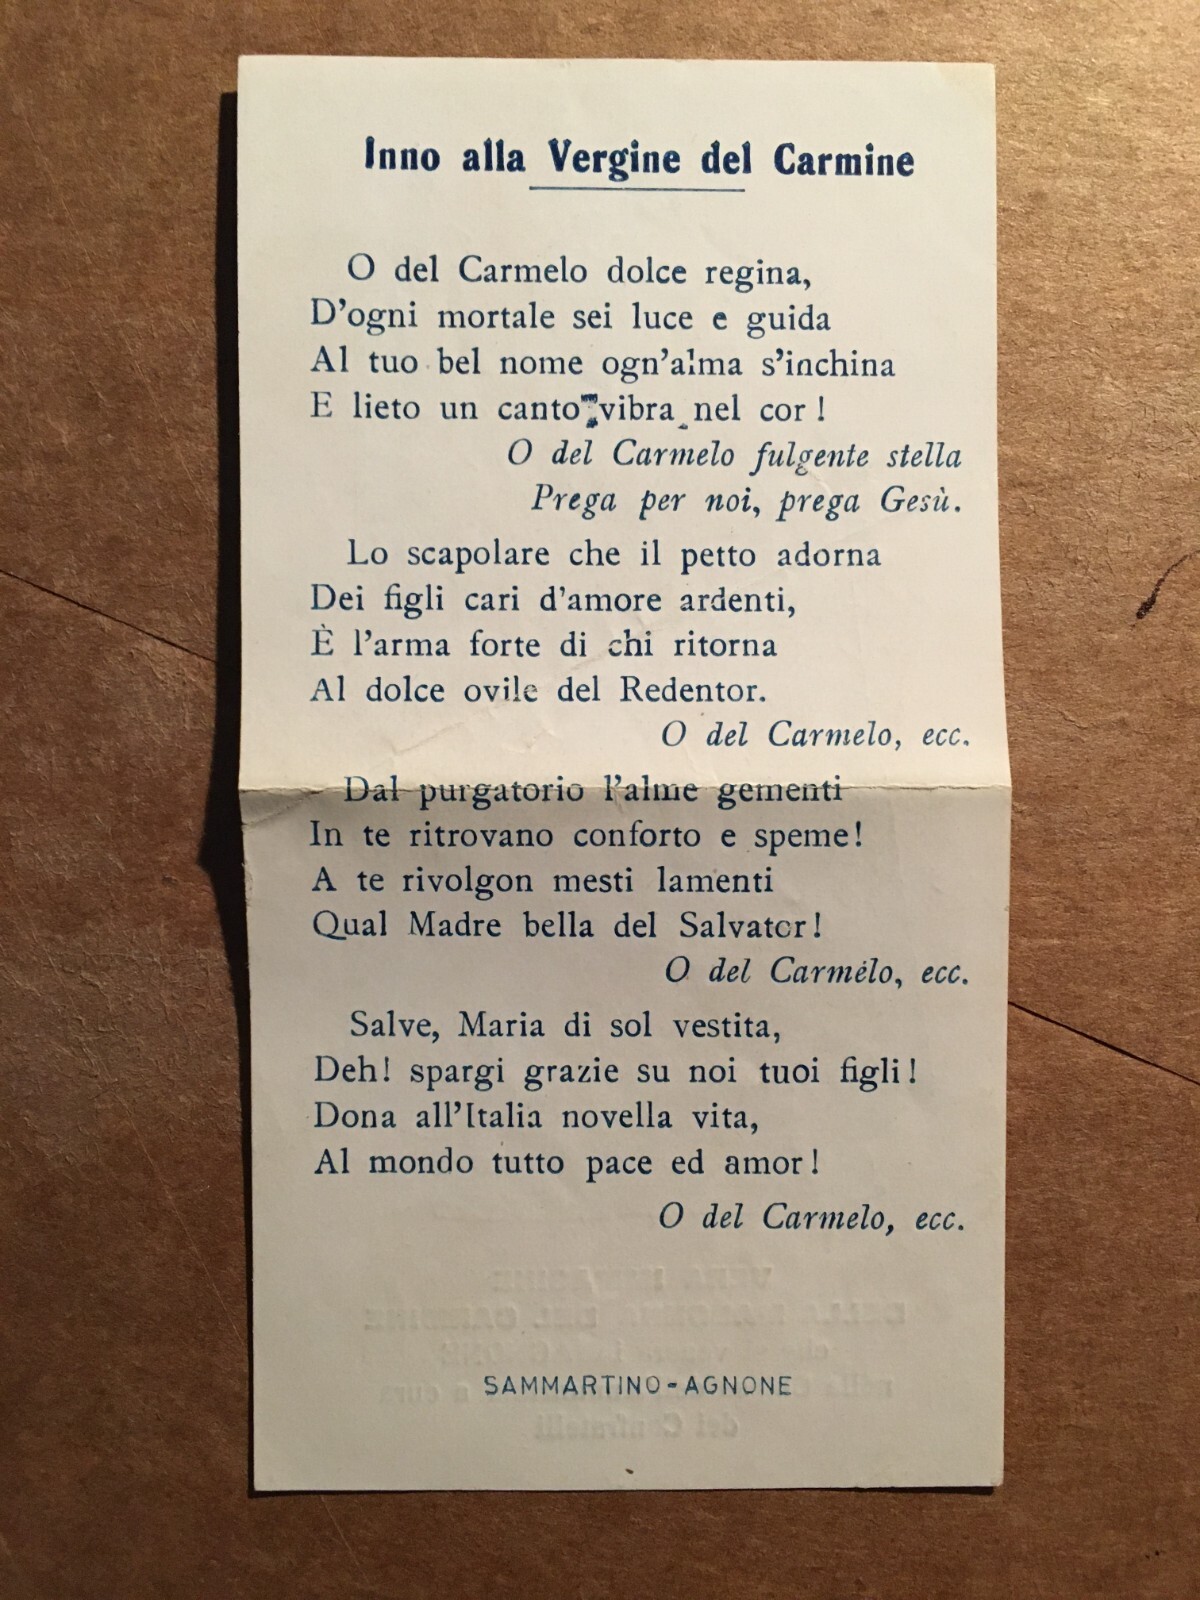 Inno alla Vergine del Carmine
O del Carmelo dolce regina,
D'ogni mortale sei luce e guida
Al tuo bel nome ogn'alma s'inchina
E lieto un canto vibra nel cor !
O del Carmelo fulgente stella
Prega per noi, prega Gesù.
Lo scapolare che il petto adorna
Dei figli cari d'amore ardenti,
È l'arma forte di chi ritorna
Al dolce ovile del Redentor.
O del Carmelo, ecc.
Dal purgatorio l'alme gementi
In te ritrovano conforto e speme!
A te rivolgon mesti lamenti
Qual Madre bella del Salvator!
O del Carmelo, ecc.
Salve, Maria di sol vestita,
Deh! spargi grazie su noi tuoi figli!
Dona all'Italia novella vita,
Al mondo tutto pace ed amor!
O del Carmelo, ecc.
VERA IMMAGINE
DELLA MADONNA DEL CARMINE
che si venera in AGNONE
nella a cura
dei Confratelli
SAMMARTINO-AGNONE